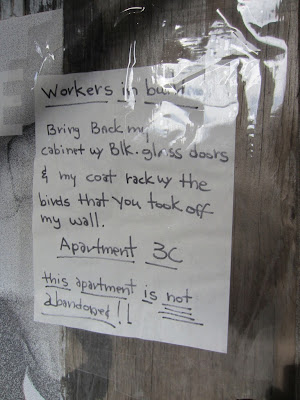 Workers in
Bring Back my
cabinet w/ Blk. glass doors
& my coat rack w/ the
birds that you took off
my wall.
Apartment 3C
this apartment is not
abandoned!!